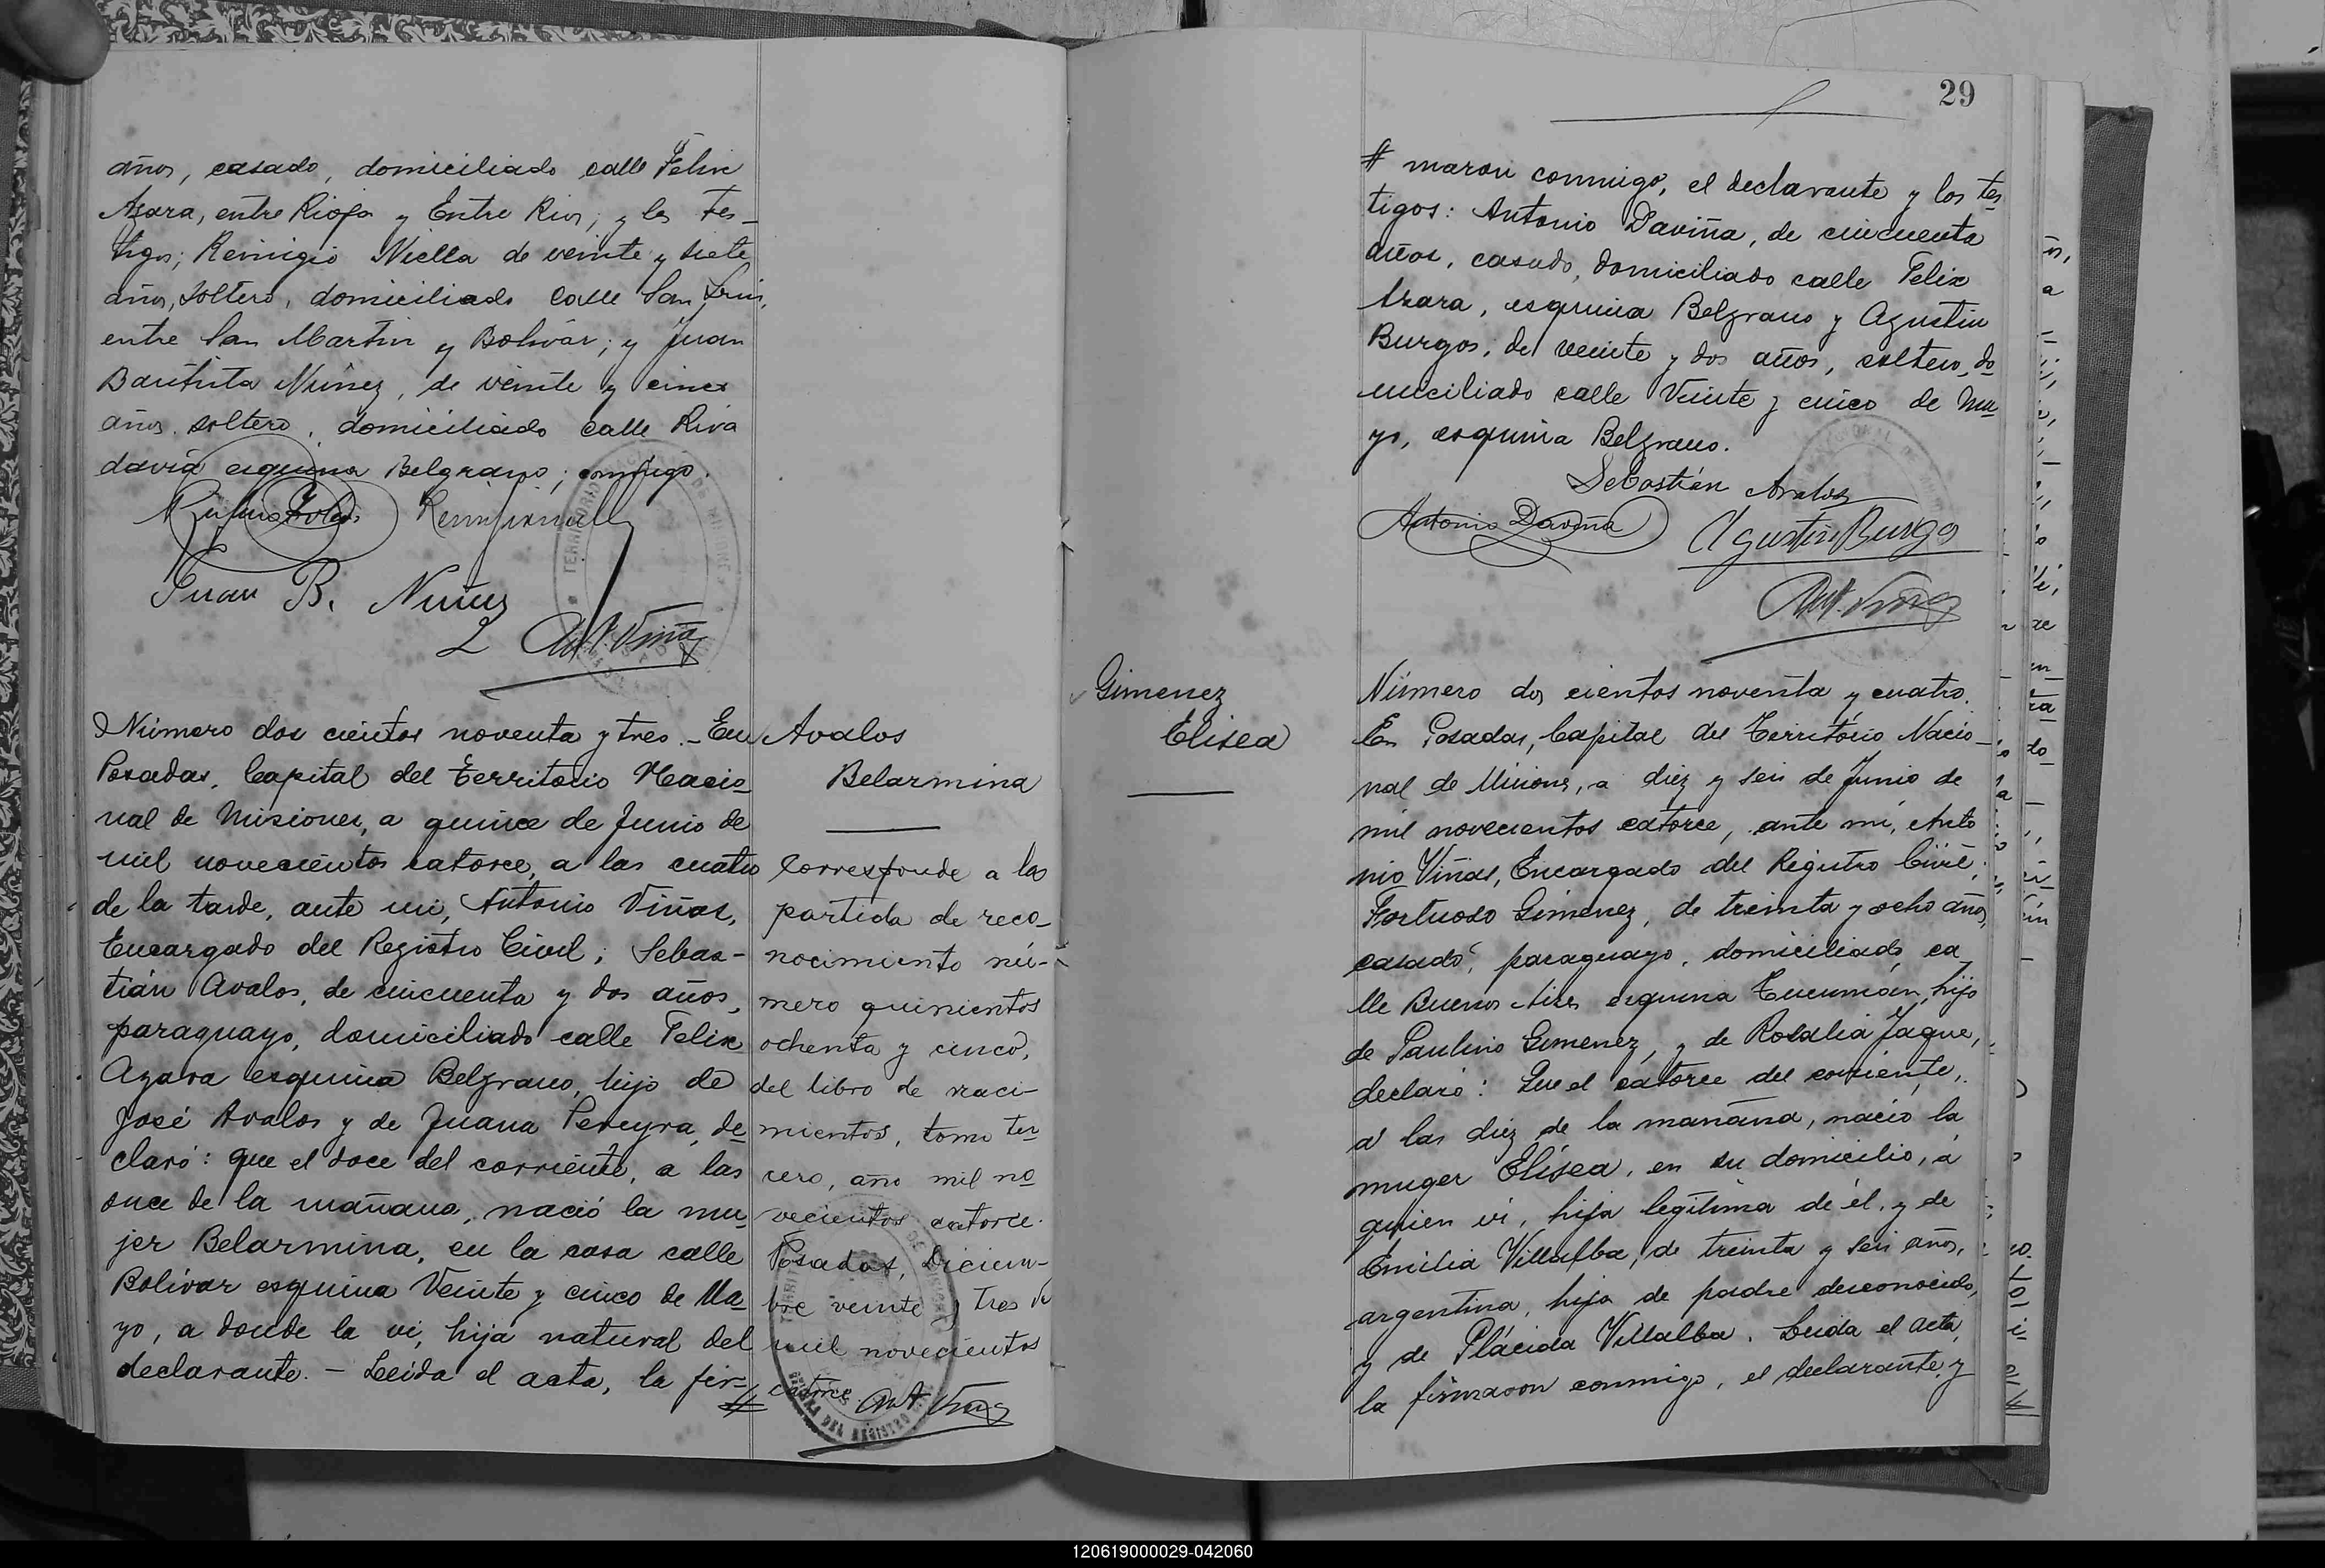 años, casado, domiciliado calle Felix
Azara, entre Rioja y Entre Rios; y los tes-
tigos; Remigio Niella de veinte y siete
años, soltero, domiciliado calle San Luis,
entre San Martin y Bolivár; y Juan
Bautista Nuñez, de veinte y cinco
años soltero, domiciliado calle Riva
davia esquina Belgrano; conmigo.
Juan B. Nuñez
Ant. Viña
Número dos cientos noventa y tres. - En
Posadas, Capital del Territorio Nacio-
nal de Misiones, a quince de Junio de
mil novecientos catorce, a las cuatro
de la tarde, ante mi, Antonio Viñas,
Encargado del Registro Civil; Sebas-
tián Avalos, de cincuenta y dos años,
paraguayo, domiciliado calle Felix
Azara esquina Belgrano, hijo de
José Avalos y de Juana Pereyra, de-
claró: que el doce del corriente, a las
once de la mañana, nació la mu-
jer Belarmina, en la casa calle
Bolívar esquina Veinte y cinco de Ma-
yo, a donde la vi, hija natural del
declarante. - Leida el acta, la fir- #
Avalos
Belarmina
Corresponde a la
partida de reco-
nocimiento nú-
mero quinientos
ochenta y cinco,
del libro de naci-
mientos, tomo ter
cero, año mil no
vecientos catorce.
Posadas, Diciem-
bre veinte y tres de
mil novecientos
catorce. Ant. Viñas
29
# maron conmigo, el declarante y los tes-
tigos: Antonio Daviña, de cincuenta
años, casado, domiciliado calle Felix
Azara, esquina Belgrano y Agustin
Burgos, de veinte y dos años, soltero, do-
miciliado calle Veinte y cinco de Ma
yo, esquina Belgrano.
Sebastián Avalos
Antonio Daviña Agustin Burgo
Ant. Viñas
Gimenez
Elisea
Número dos cientos noventa y cuatro.
En Posadas, Capital del Território Nacio-
nal de Misiones, a diez y seis de Junio de
mil novecientos catorce, ante mi, Anto
nio Viñas, Encargado del Registro Civil;
Fortuoso Gimenez, de treinta y ocho años,
casado, paraguayo, domiciliado ca
lle Buenos Aires esquina Tucumán, hijo
de Paulino Gimenez, y de Rosalia Jaque,
declaró: Que el catorce del corriente,
á las diez de la mañana, nació la
muger Elisea, en su domicilio, á
quien vi, hija legítima de él, y de
Emilia Villalba, de treinta y seis años,
argentina, hija de padre desconocido,
y de Plácida Villalba. Leida el acta,
la firmaron conmigo, el declarante, y
120619000029-042060